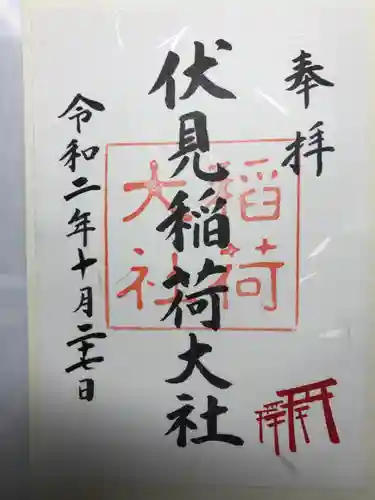 奉拝
伏見稲荷大社
稲荷
大社
令和二年十月二十七日